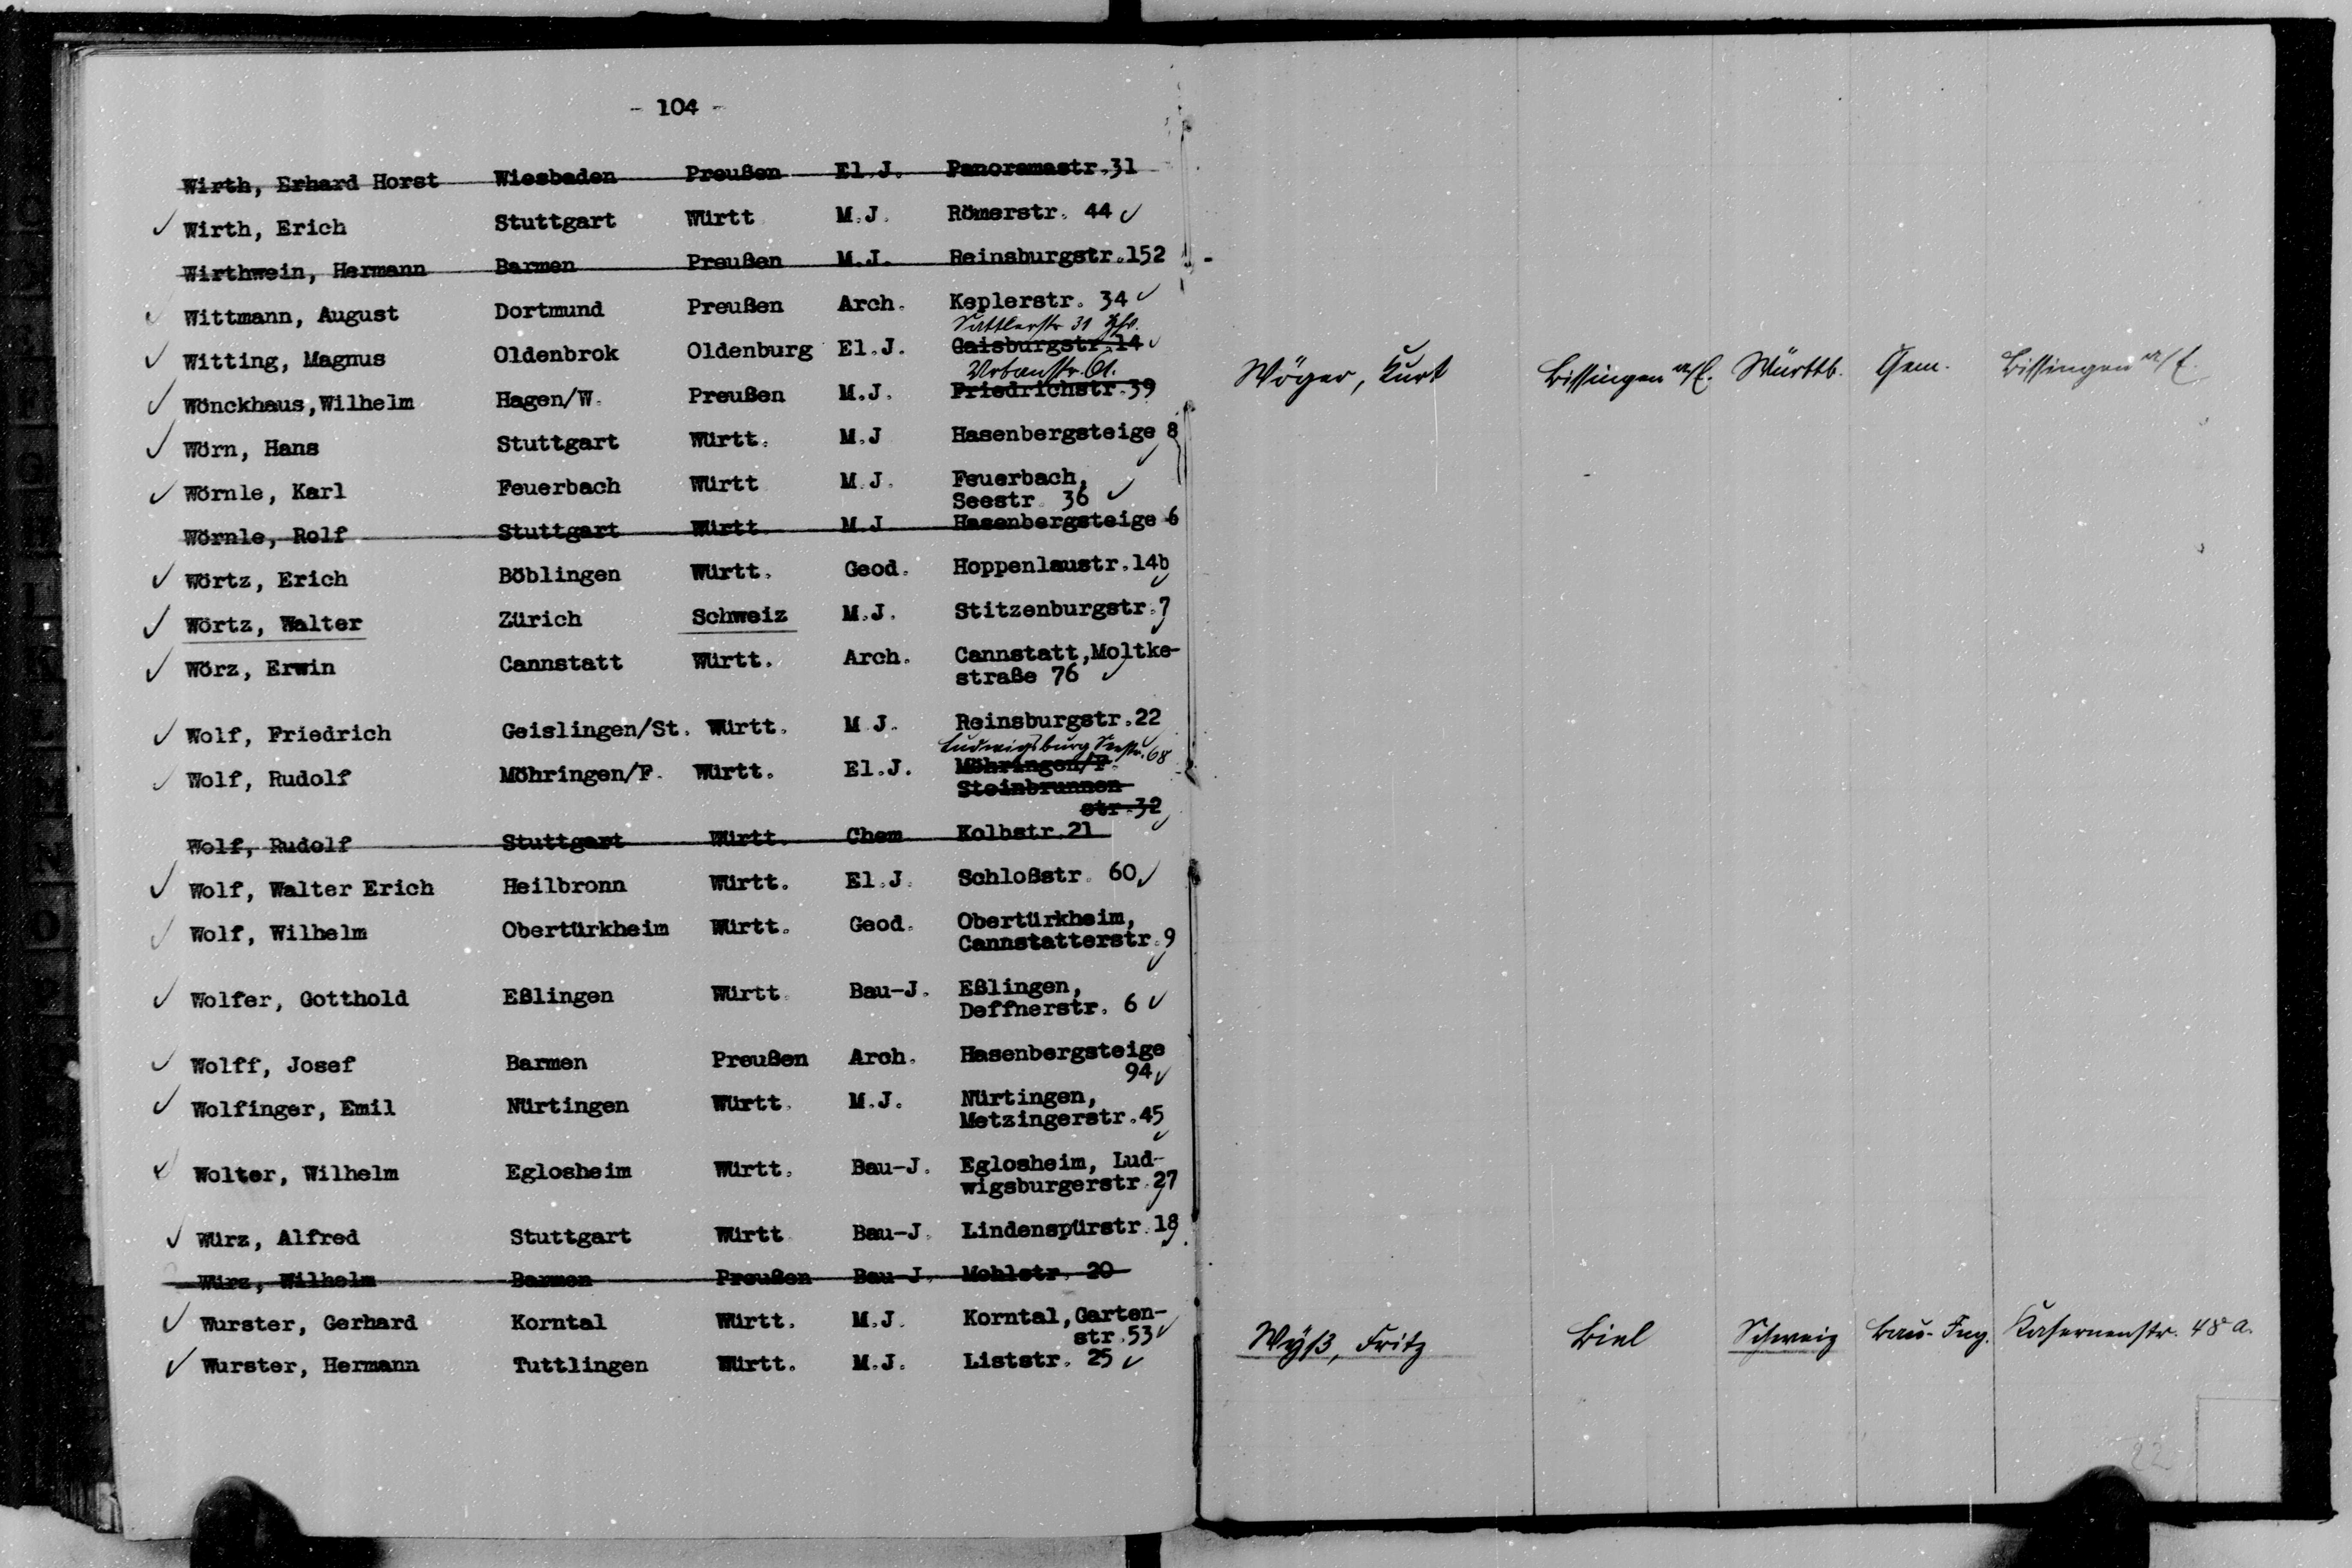 - 104 -
Wirth, Erhard Horst Wiesbaden Preußen El.J. Panoramastr.31
Wirth, Erich Stuttgart Württ M.J. Römerstr. 44
Wirthwein, Hermann Barmen Preußen M.J. Reinsburgstr.152
Wittmann, August Dortmund Preußen Arch. Keplerstr. 34
Sattlerstr 31
Witting, Magnus Oldenbrok Oldenburg El.J. Gaisburgstr.14
Urbanstr. 61.
Wönckhaus,Wilhelm Hagen/W. Preußen M.J. Friedrichstr.39
Wörn, Hans Stuttgart Württ. M.J Hasenbergsteige 8
Wörnle, Karl Feuerbach Württ M.J. Feuerbach,
Seestr 36
Wörnle, Rolf Stuttgart Württ M.J Hasenbergsteige 6
Wörtz, Erich Böblingen Württ. Geod. Hoppenlaustr.14b
Wörtz, Walter Zürich Schweiz M.J. Stitzenburgstr.7
Wörz, Erwin Cannstatt Württ. Arch. Cannstatt,Moltke-
straße 76
Wolf, Friedrich Geislingen/St. Württ. M.J. Reinsburgstr.22
Ludwigsburg Seestr. 68
Wolf, Rudolf Möhringen/F. Württ. El.J. Möhringen/F.
Steinbrunnen
str.32
Wolf, Rudolf Stuttgart Württ. Chem Kolbstr.21
Wolf, Walter Erich Heilbronn Württ. El.J. Schloßstr. 60
Wolf, Wilhelm Obertürkheim Württ. Geod. Obertürkheim,
Cannstatterstr.9
Wolfer, Gotthold Eßlingen Württ. Bau-J. Eßlingen,
Deffnerstr. 6
Wolff, Josef Barmen Preußen Arch. Hasenbergsteige
94
Wolfinger, Emil Nürtingen Württ. M.J. Nürtingen,
Metzingerstr.45
Wolter, Wilhelm Eglosheim Württ. Bau-J. Eglosheim, Lud-
wigsburgerstr.27
Würz, Alfred Stuttgart Württ Bau-J. Lindenspürstr.18
Würz, Wilhelm Barmen Preußen Bau-J. Mohlstr. 20
Wurster, Gerhard Korntal Württ. M.J. Korntal,Garten-
str.53
Wurster, Hermann Tuttlingen Württ. M.J. Liststr. 25
Wöger, Kurt Bissingen a/E. Württb. Bissingen a/E.
Wyß, Fritz Biel Schweiz Bau-Ing. Kasernenstr. 48 a.
22